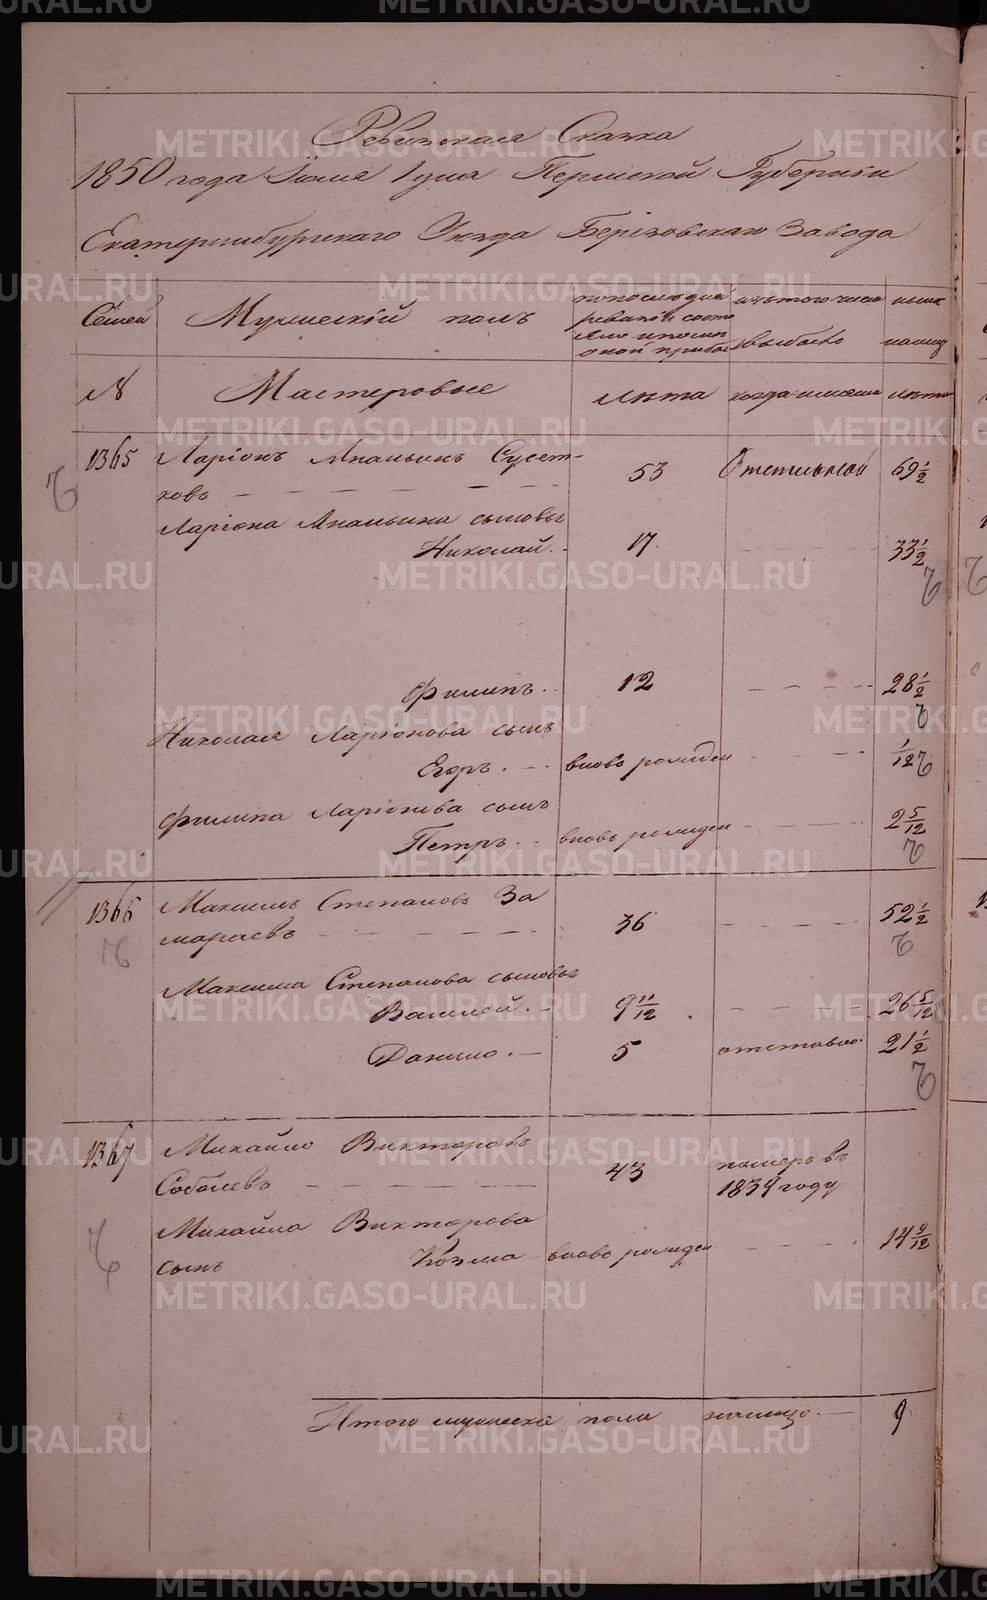 Ревизская Сказка
1850 года Июля 1 дня Пермской Губернiи
Екатеринбургскаго Уезда Берiзовскаго Завода
Семей
Мужескiй полъ
по последней
ревизiи состо
яло и после
оной прибы
изъ того числа
выбыло
ныне
налицо
№
Мастеровые
лѣта
когда именно
лѣта
1365 Ларiонъ Ананьинъ Сусет- 53 Отставной 69 1/2
ковъ
Ларiона Ананьина сыновья
Николай 17 33 1/2
Филипъ 12 28 1/2
Николая Ларiонова сынъ
Егоръ вновь рожден 1/12
Филипа Ларiонова сынъ
Петръ вновь рожден 2 5/12
1366 Максимъ Степановъ За 36 52 1/2
мараевъ
Максима Степанова сыновья
Василей 9 11/12 26 5/12
Данило 5 отставно 21 1/2
1367 Михайло Викторовъ
Соболевъ 43 померъ въ
1834 году
Михайла Викторова
сынъ Козма вновь рожден 14 9/12
Итого мужеска пола налицо 9
METRIKI.GASO-URAL.RU